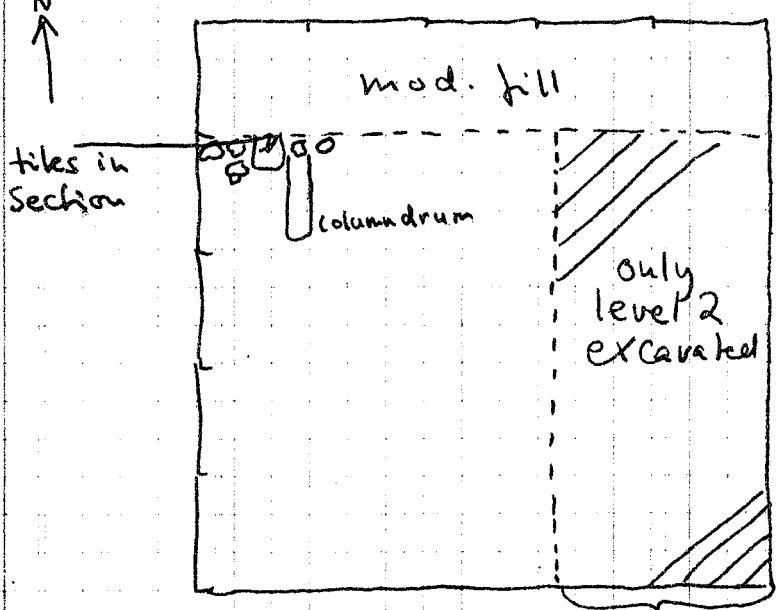 N
mod. fill
tiles in
Section
columndrum
only
level 2
excavated